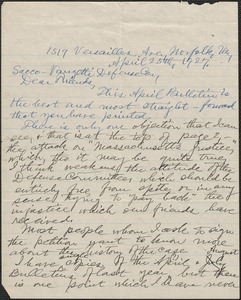 1519 Versailles Ave, Norfolk, Va,
April 25th, 1927.
Sacco-Vanzetti Defense Com,
Dear Friends,
This April Bulletin is
the best and most straight-forward
that you have printed.
There is only one objection that I can
see, & that is at the top of page 2,
the attack on "Massachusetts Justice"
which tho it may be quite true,
I think weakens the attitude of the
Defense Committee which should be
entirely free from spite, or in any
sense trying to pay back the
injustice which our friends have
received.
Most people whom I ask to sign
the petition want to know more
about the history of the case.
I have copies of the April,
Bulletins of last year but there
is one point which I have never